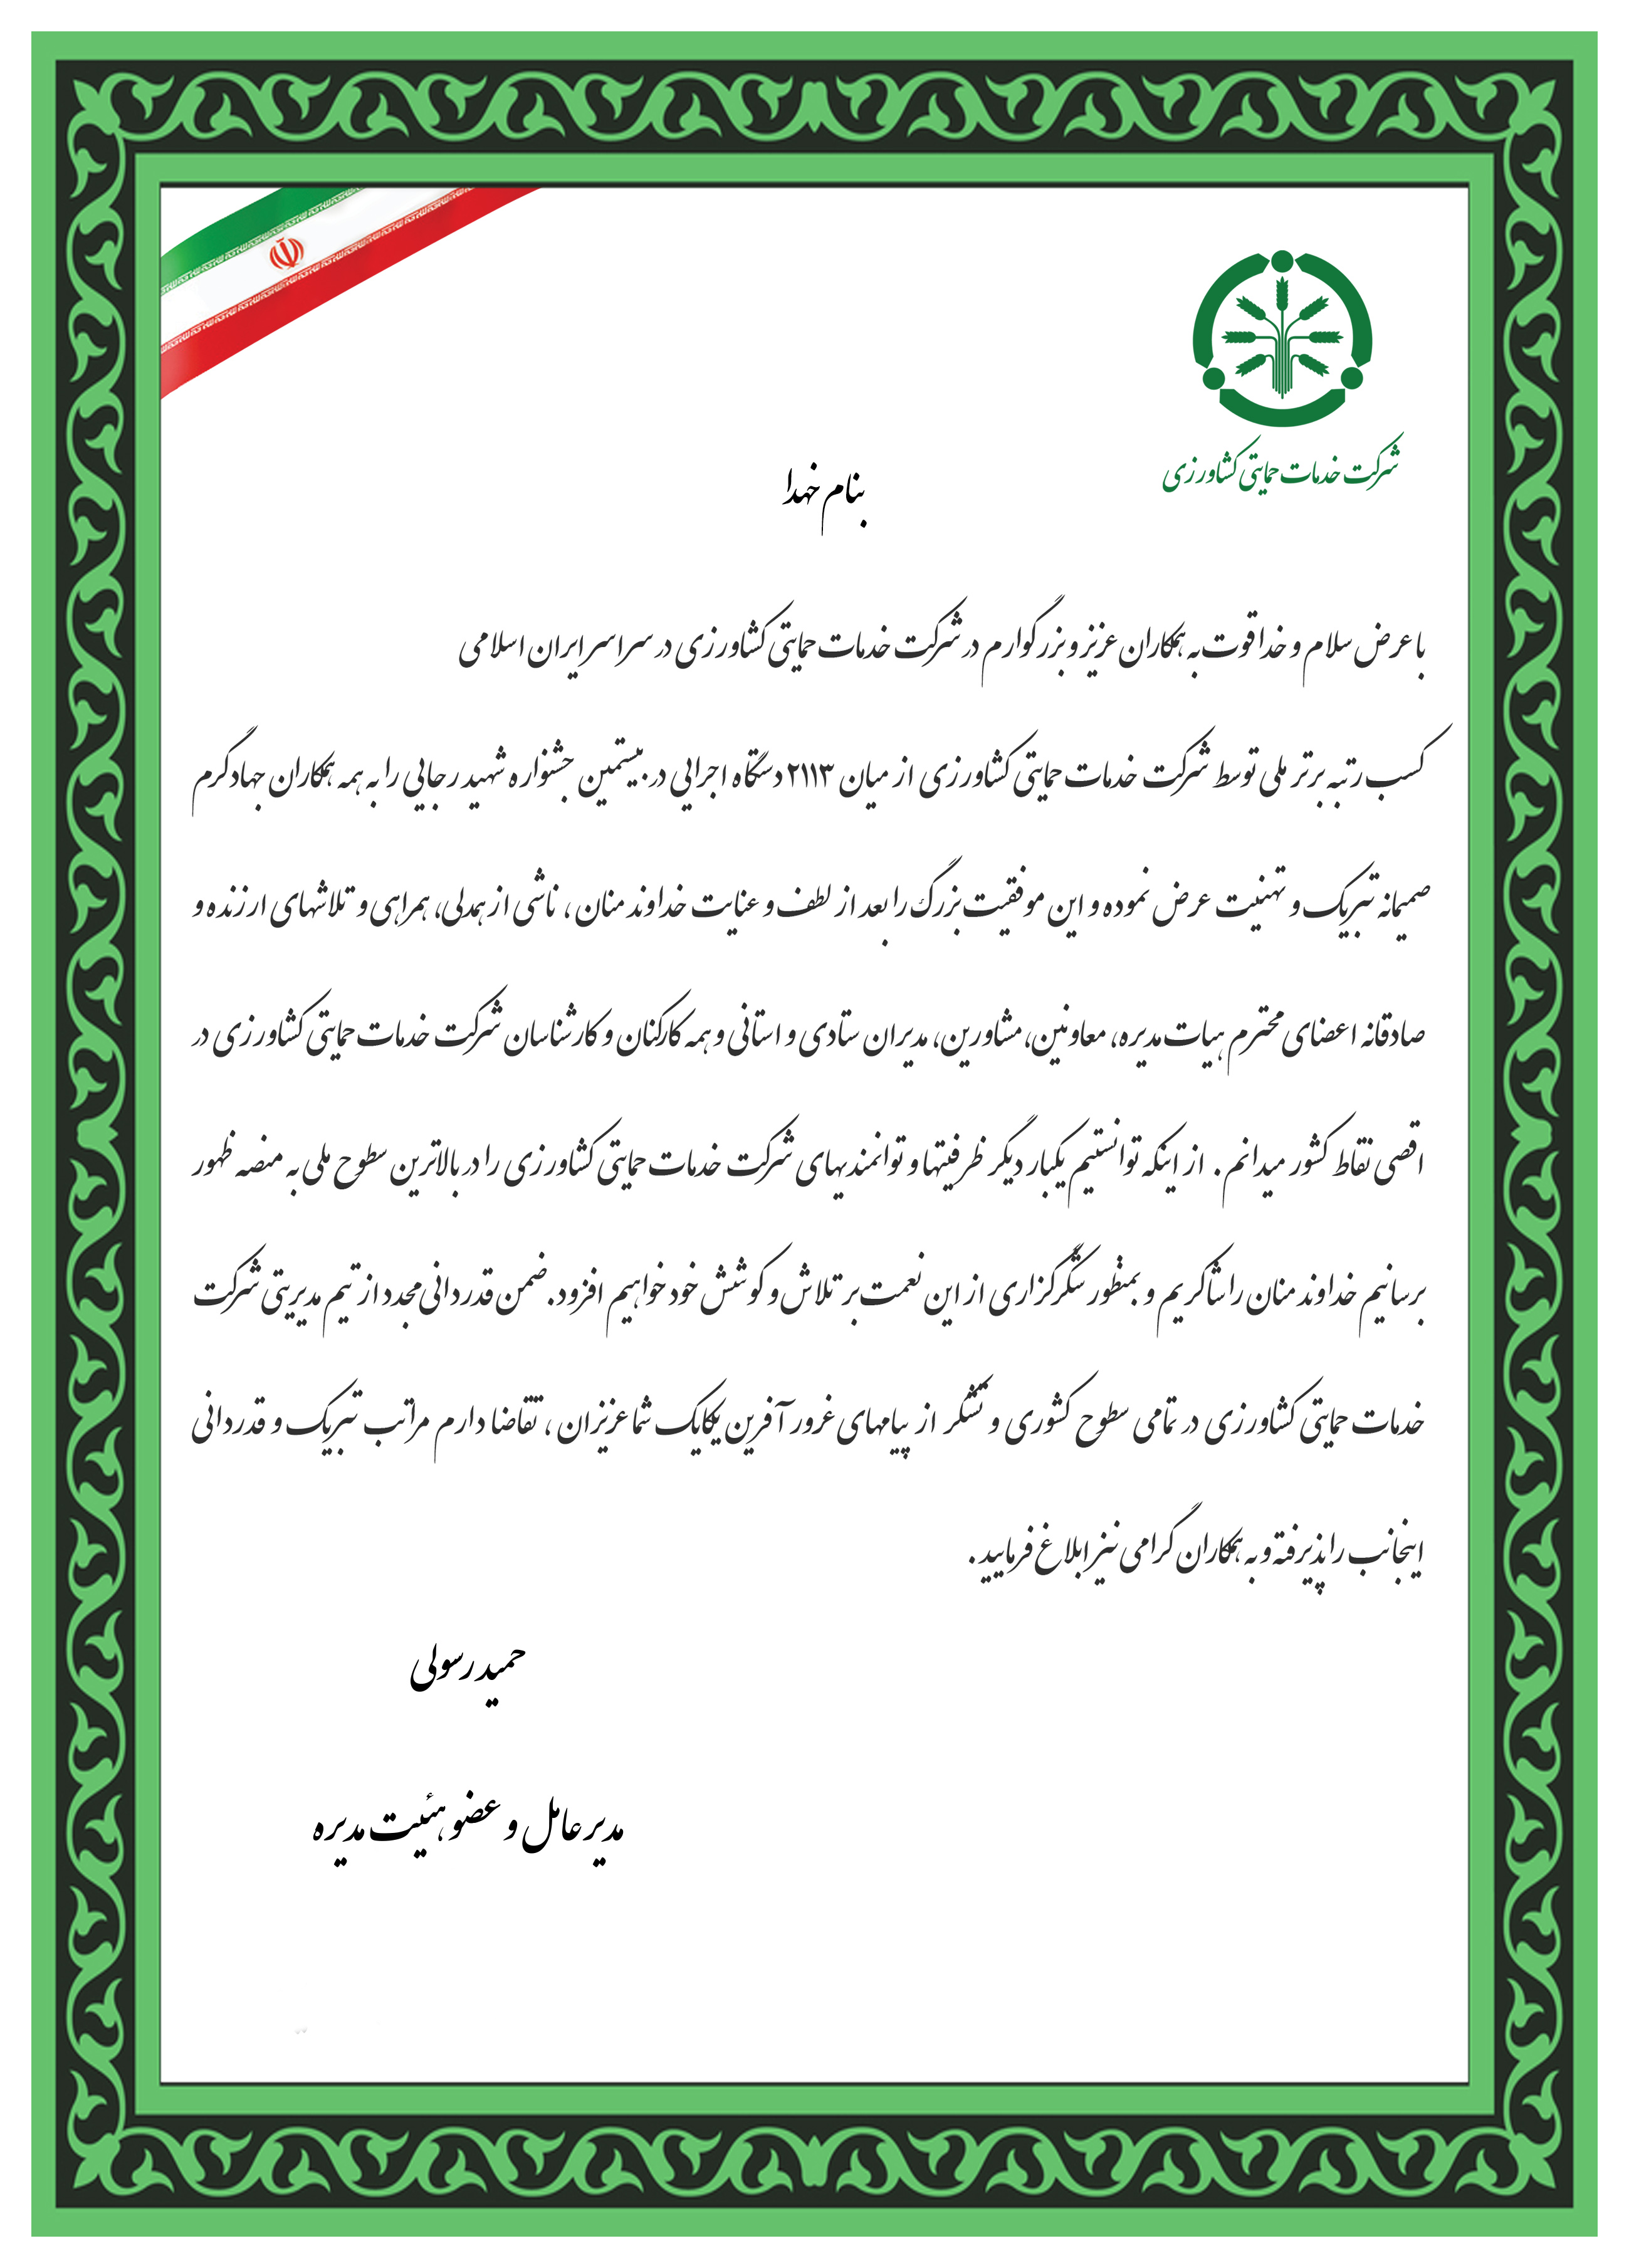 شرکت خدمات حمایتی کشاورزی
بنام خدا
با عرض سلام و خدا قوت به همکاران عزیز و بزرگوارم در شرکت خدمات حمایتی کشاورزی در سراسر ایران اسلامی
کسب رتبه برتر ملی توسط شرکت خدمات حمایتی کشاورزی از میان ۲۱۱۳ دستگاه اجرایی در بیستمین جشنواره شهید رجایی را به همه همکاران جهادگرم
صمیمانه تبریک و تهنیت عرض نموده و این موفقیت بزرگ را بعد از لطف و عنایت خداوند منان ، ناشی از همدلی، همراهی و تلاشهای ارزنده و
صادقانه اعضای محترم هیات مدیره، معاونین، مشاورین، مدیران ستادی و استانی و همه کارکنان و کارشناسان شرکت خدمات حمایتی کشاورزی در
اقصی نقاط کشور میدانم . از اینکه توانستیم یکبار دیگر ظرفیتها و توانمندیهای شرکت خدمات حمایتی کشاورزی را در بالاترین سطوح ملی به منصه ظهور
برسانیم خداوند منان را شاکریم و بمنظور شکرگزاری از این نعمت بر تلاش و کوشش خود خواهیم افزود. ضمن قدردانی مجدد از تیم مدیریتی شرکت
خدمات حمایتی کشاورزی در تمامی سطوح کشوری و تشکر از پیامهای غرور آفرین یکایک شما عزیزان ، تقاضا دارم مراتب تبریک و قدردانی
اینجانب را پذیرفته و به همکاران گرامی نیز ابلاغ فرمایید .
حمید رسولی
مدیر عامل و عضو هئیت مدیره